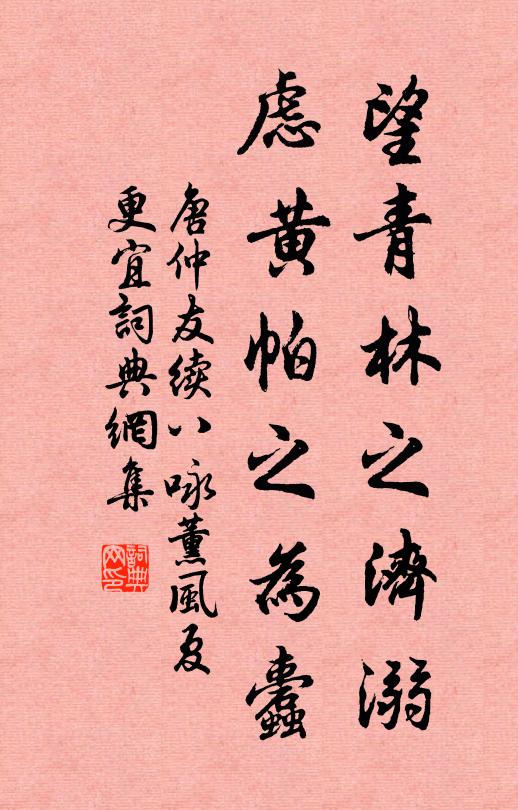 望青林之濟溺
慮黃帕之為蠹
唐仲友續八詠薰風夏
更宜詞典網集
詞典
网印